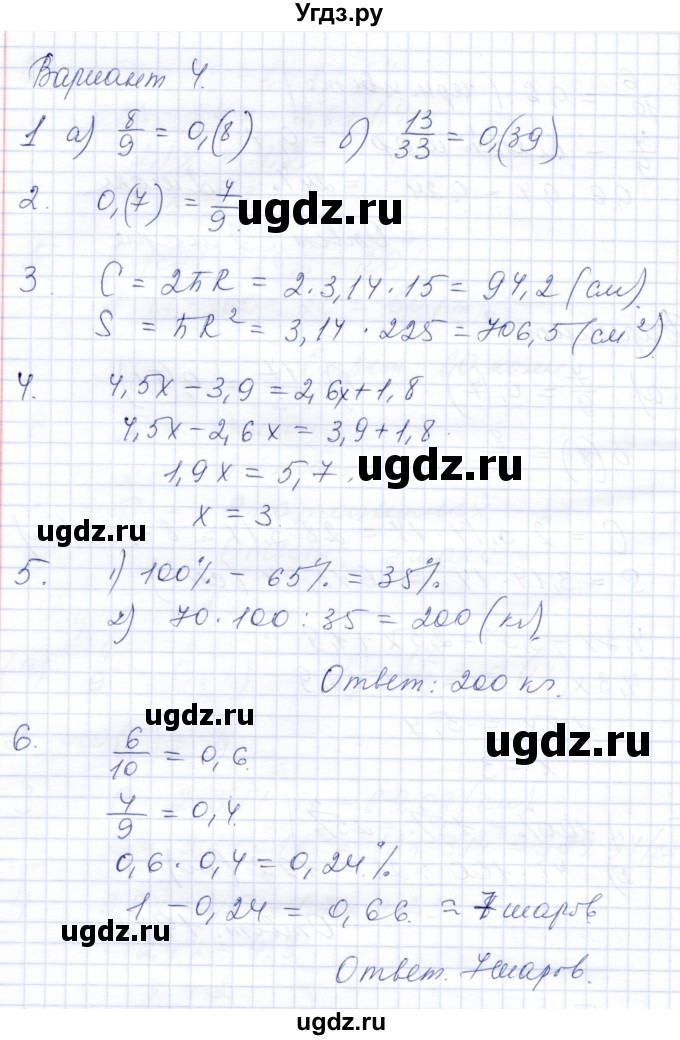 Угдз.ру
Вариант 4.
1 а) 8/9 = 0,(8) б) 13/33 = 0,(39)
2. 0,(7) = 7/9.
ugdz.ru
3. C = 2πR = 2·3,14·15 = 94,2 (см).
S = πR² = 3,14·225 = 706,5 (см²)
4. 4,5x - 3,9 = 2,6x + 1,8
4,5x - 2,6x = 3,9 + 1,8.
1,9x = 5,7.
ugdz.ru
x = 3.
ugdz.ru
5. 1) 100% - 65% = 35%.
2) 70·100 : 35 = 200 (кг).
Ответ: 200 кг.
ugdz.ru
6. 6/10 = 0,6.
ugdz.ru
4/9 = 0,4.
0,6·0,4 = 0,24.%
1 - 0,24 = 0,66. ≈ 7 шаров.
ugdz.ru
Ответ. 7 шаров.
ugdz.ru
ugdz.ru